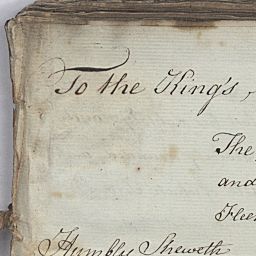 To the King's,
The
and
Fleet
Humbly Sheweth